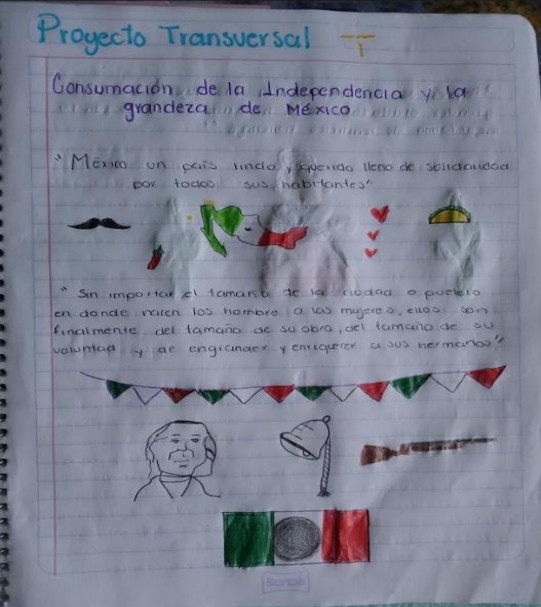 Proyecto Transversal
Consumación de la Independencia y la
grandeza de México
"México un país lindo y querido lleno de solidaridad
por todos sus habitantes"
"Sin importar el tamaño de la ciudad o pueblo
en donde nacen los hombre o las mujeres, ellos son
finalmente del tamaño de su obra, del tamaño de su
voluntad y de engrandecer y enriquecer a sus hermanos"
Scribe